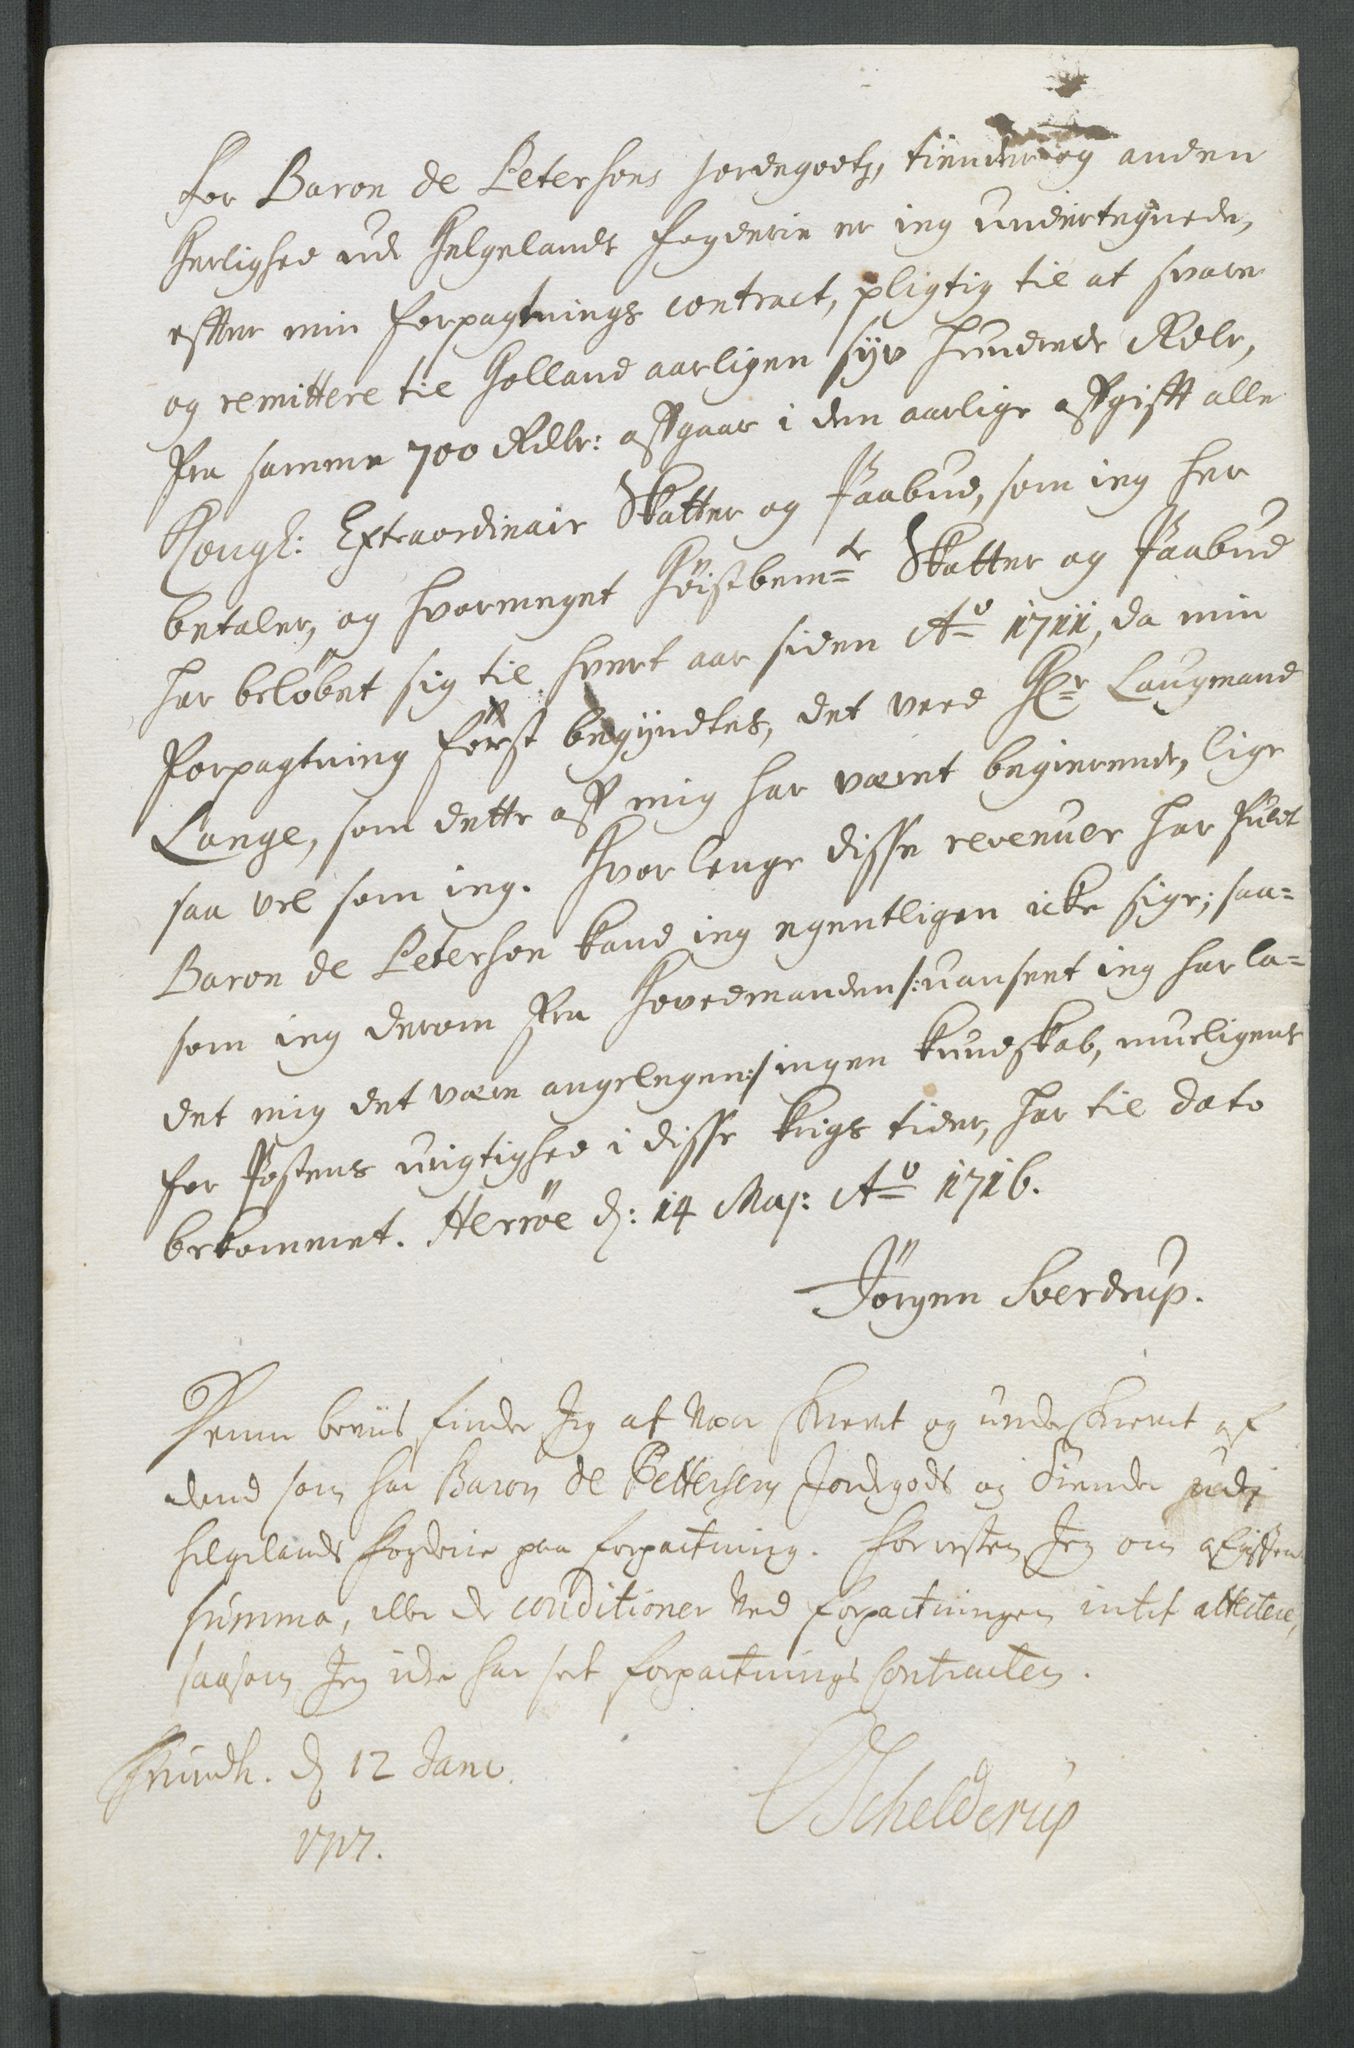 For Baron de Petersons jordegodtz, tiender og anden
Herlighed udi Helgelands Fogderie er ieg undertegnede,
efter min forpagtnings contract, pligtig til at svare
og remittere til Holland aarligen syv hundrede Rdlr,
Fra samme 700 Rdlr: affgaar i den aarlige affgifft alle
Kongl: Extraordinair Skatter og Paabud, som ieg her
betaler, og hvormeget Høistbemte Skatter og Paabud
har beløbet sig til hvert aar siden Ao 1711, da min
Forpagtning først begyndtes, det veed Hr Laugmand
Lange, som dette aff mig har været begierende, lige
saa vel som ieg. Hvor lenge disse revenuer har fuldt
Baron de Peterson kand ieg egentligen icke sige; saa=
som ieg derom fra Hovedmanden /: uanseet ieg har la=
det mig det være angelegen :/ ingen kundskab, mueligens
for Postens urigtighed i disse krigs tider, har til dato
bekommet. Herrøe d: 14 Maj: Ao 1716.
Jørgen Sverdrup.
Denne beviis finder Jeg at vær skrevet og underskrevet af
dend som har Baron de Pettersens Jordegods og Tiender udj
Helgelands fogderie paa forpactning. Forresten Jeg om afgiften
summa, eller de conditioner ved forpactningen intet attestere,
saasom Jeg icke har seet forpactnings Contracten.
Trundh. d 12 Janv.
1717.
Schelderup